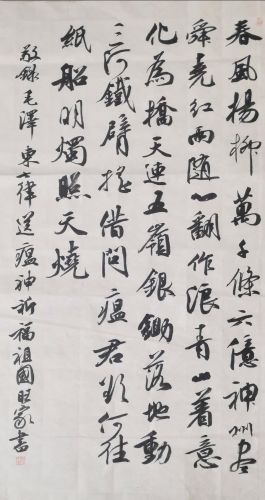 春風楊柳萬千條六億神州尽
舜堯紅雨隨心翻作浪青山着意
化為橋天連五嶺銀鋤落地動
三河鐵臂摇借問瘟君欲何往
紙船明燭照天燒
敬録毛澤東七律送瘟神祈福祖國家書